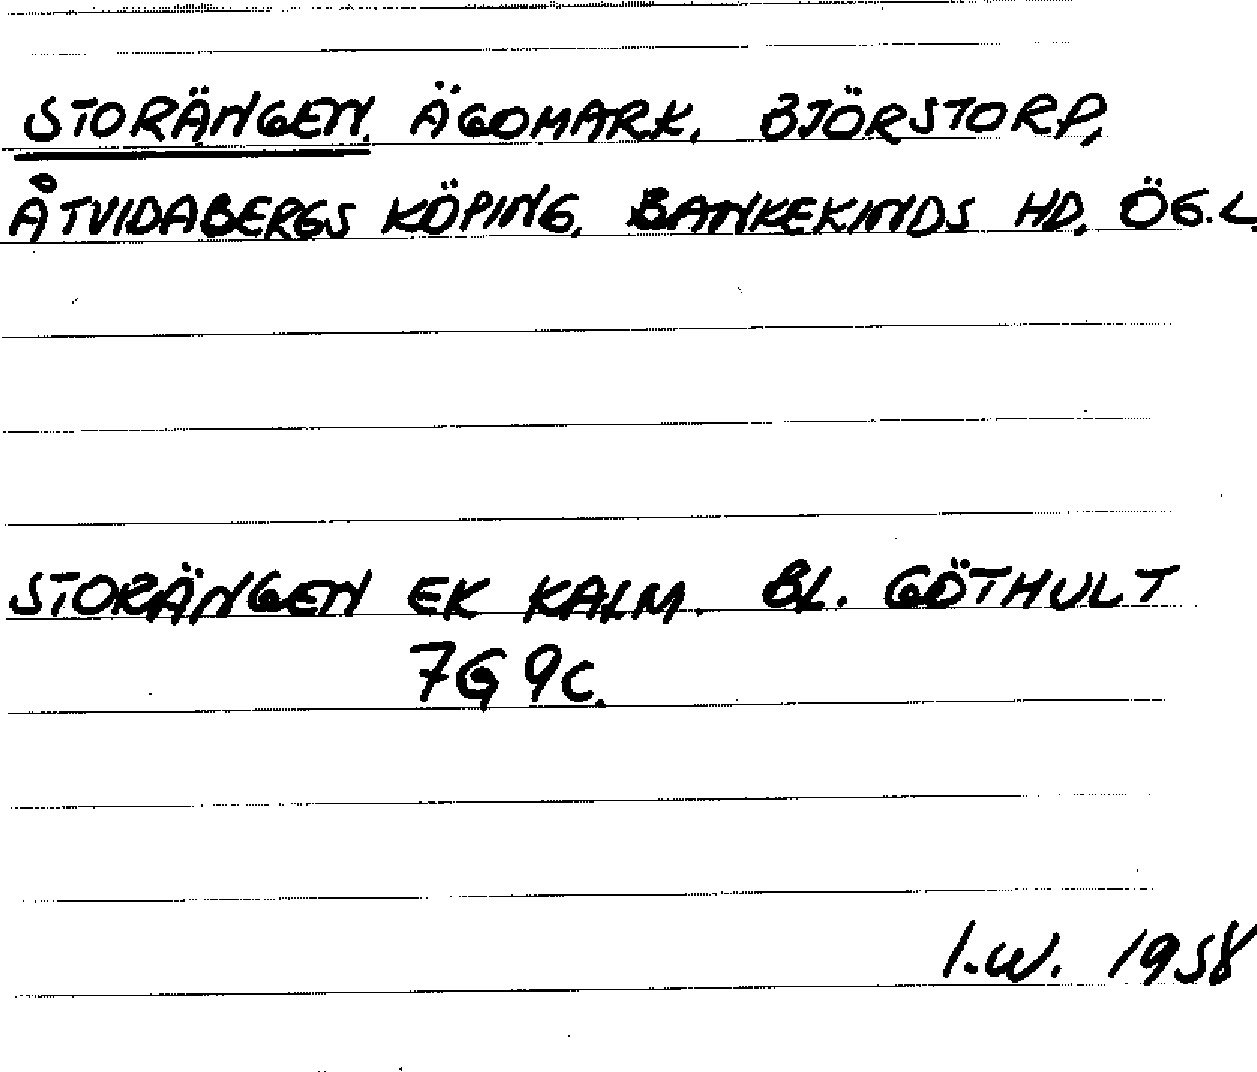 STORÄNGEN, ÄGOMARK, BJÖRSTORP,
ÅTVIDABERGS KÖPING, BANKEKINDS HD, ÖG.L.
STORÄNGEN EK KALM. BL. GÖTHULT
7G 9C.
I.W. 1958